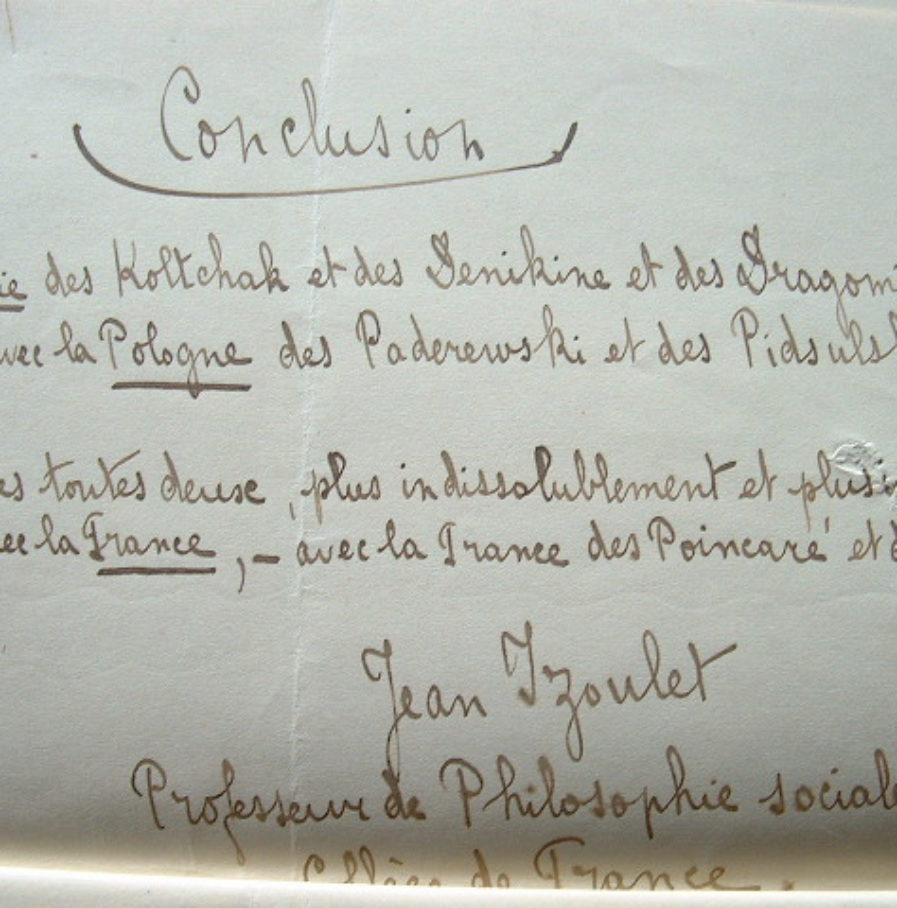 Conclusion
ie des Koltchak et des Denikine et des Dragomi
vec la Pologne des Paderewski et des Pidsuls
es toutes deuse, plus indissolublement et plus
ec la France, – avec la France des Poincaré et d
Jean Izoulet
Professeur de Philosophie sociale
Collège de France.